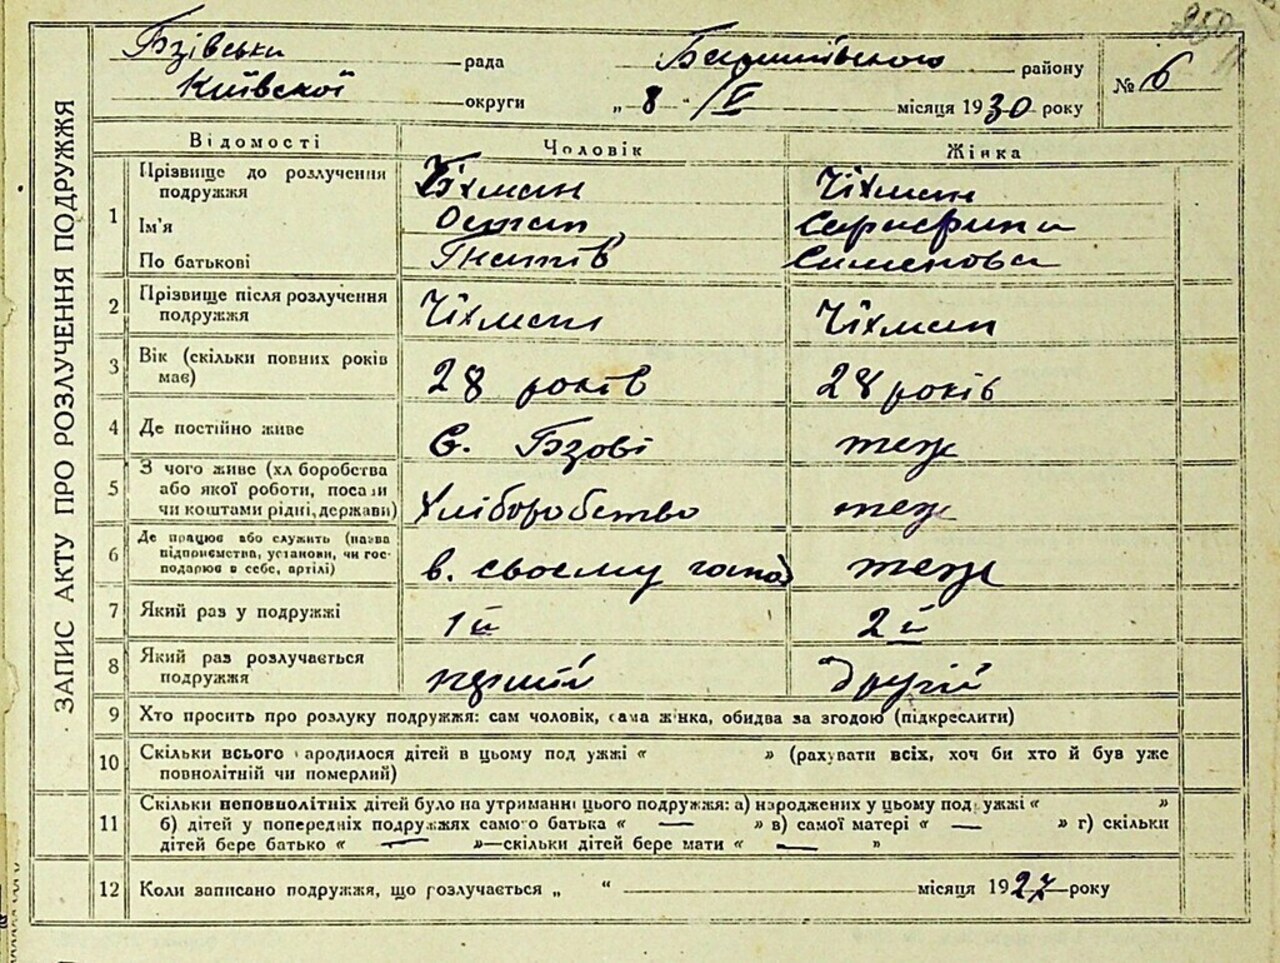 250
ЗАПИС АКТУ ПРО РОЗЛУЧЕННЯ ПОДРУЖЖЯ
Бзівська рада Баришівського району № 6
Київскої округи „ 8 “ / V місяця 1930 року
Відомості Чоловік Жінка
1 Прізвище до розлучення подружжя Чіхман Чіхман
Ім'я Остап Серафина
По батькові Гнатів Сименова
2 Прізвище після розлучення подружжя Чіхман Чіхман
3 Вік (скільки повних років має) 28 років 28 років
4 Де постійно живе С. Бзові теж
5 З чого живе (хліборобства або якої роботи, посади чи коштами рідні, держави) хліборобство теж
6 Де працює або служить (назва підприємства, установи, чи господарює в себе, артілі) в. своєму госпо теж
7 Який раз у подружжі 1й 2й
8 Який раз розлучається подружжя перший другій
9 Хто просить про розлуку подружжя: сам чоловік, сама жінка, обидва за згодою (підкреслити)
10 Скільки всього народилося дітей в цьому подружжі « » (рахувати всіх, хоч би хто й був уже
повнолітній чи померлий)
11 Скільки неповнолітніх дітей було на утриманні цього подружжя: а) народжених у цьому подружжі « »
б) дітей у попередніх подружжях самого батька « — » в) самої матері « — » г) скільки
дітей бере батько « — »—скільки дітей бере мати « — »
12 Коли записано подружжя, що розлучається „ “ місяця 1927 року